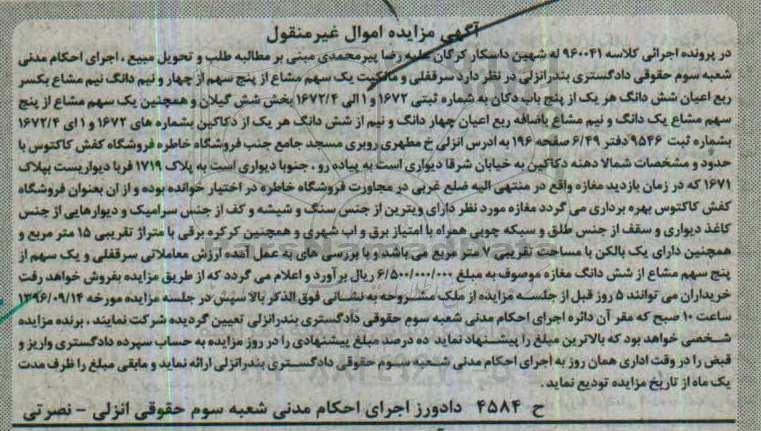 آگهی مزایده اموال غیرمنقول
در پرونده اجرائی کلاسه ۹۶۰۰۴۱ له شهین داسکار کرگان علیه رضا پیرمحمدی مبنی بر مطالبه طلب و تحویل مبیع ، اجرای احکام مدنی
شعبه سوم حقوقی دادگستری بندرانزلی در نظر دارد سرقفلی و مالکیت یک سهم مشاع از پنج سهم از چهار و نیم دانگ نیم مشاع یکسر
ربع اعیان شش دانگ هر یک از پنج باب دکان به شماره ثبتی ۱۶۷۲ و ۱ الی ۱۶۷۲/۴ بخش شش گیلان و همچنین یک سهم مشاع از پنج
سهم مشاع یک دانگ و نیم مشاع باضافه ربع اعیان چهار دانگ و نیم از شش دانگ هر یک از دکاکین بشماره های ۱۶۷۲ و ۱ ای ۱۶۷۲/۴
بشماره ثبت ۹۵۴۶ دفتر ۶/۴۹ صفحه ۱۹۶ به ادرس انزلی خ مطهری روبری مسجد جامع جنب فروشگاه خاطره فروشگاه کفش کاکتوس با
حدود و مشخصات شمالا دهنه دکاکین به خیابان شرقا دیواری است به پیاده رو ، جنوبا دیواری است به پلاک ۱۷۱۹ فربا دیواریست بپلاک
۱۶۷۱ که در زمان بازدید مغازه واقع در منتهی الیه ضلع غربی در مجاورت فروشگاه خاطره در اختیار خوانده بوده و از ان بعنوان فروشگاه
کفش کاکتوس بهره برداری می گردد مغازه مورد نظر دارای ویترین از جنس سنگ و شیشه و کف از جنس سرامیک و دیوارهایی از جنس
کاغذ دیواری و سقف از جنس طلق و سبکه چوبی همراه با امتیاز برق و اب شهری و همچنین کرکره برقی با متراژ تقریبی ۱۵ متر مربع و
همچنین دارای یک بالکن با مساحت تقریبی ۷ متر مربع می باشد و با بررسی های به عمل آمده ارزش معاملاتی سرقفلی و یک سهم از
پنج سهم مشاع از شش دانگ مغازه موصوف به مبلغ ۶/۵۰۰/۰۰۰/۰۰۰ ریال برآورد و اعلام می گردد که از طریق مزایده بفروش خواهد رفت
خریداران می توانند ۵ روز قبل از جلسه مزایده از ملک مشروحه به نشانی فوق الذکر بالا سپش در جلسه مزایده مورخه ۱۳۹۶/۰۹/۱۴
ساعت ۱۰ صبح که مقر آن دائره اجرای احکام مدنی شعبه سوم حقوقی دادگستری بندرانزلی تعیین گردیده شرکت نمایند ، برنده مزایده
شخصی خواهد بود که بالاترین مبلغ را پیشنهاد نماید ده درصد مبلغ پیشنهادی را در روز مزایده به حساب سپرده دادگستری واریز و
قبض را در وقت اداری همان روز به اجرای احکام مدنی شعبه سوم حقوقی دادگستری بندرانزلی ارائه نماید و مابقی مبلغ را ظرف مدت
یک ماه از تاریخ مزایده تودیع نماید .
ح ۴۵۸۴ دادورز اجرای احکام مدنی شعبه سوم حقوقی انزلی – نصرتی